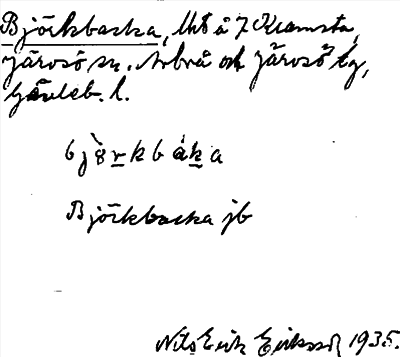 Björkbacka, Utö å 7 Kramsta,
Järvsö sn. Arbrå och Järvsö tg,
Gävleb. l.
bjö̀rkbáka
Björkbacka jb
Nils Erik Eriksson 1935.